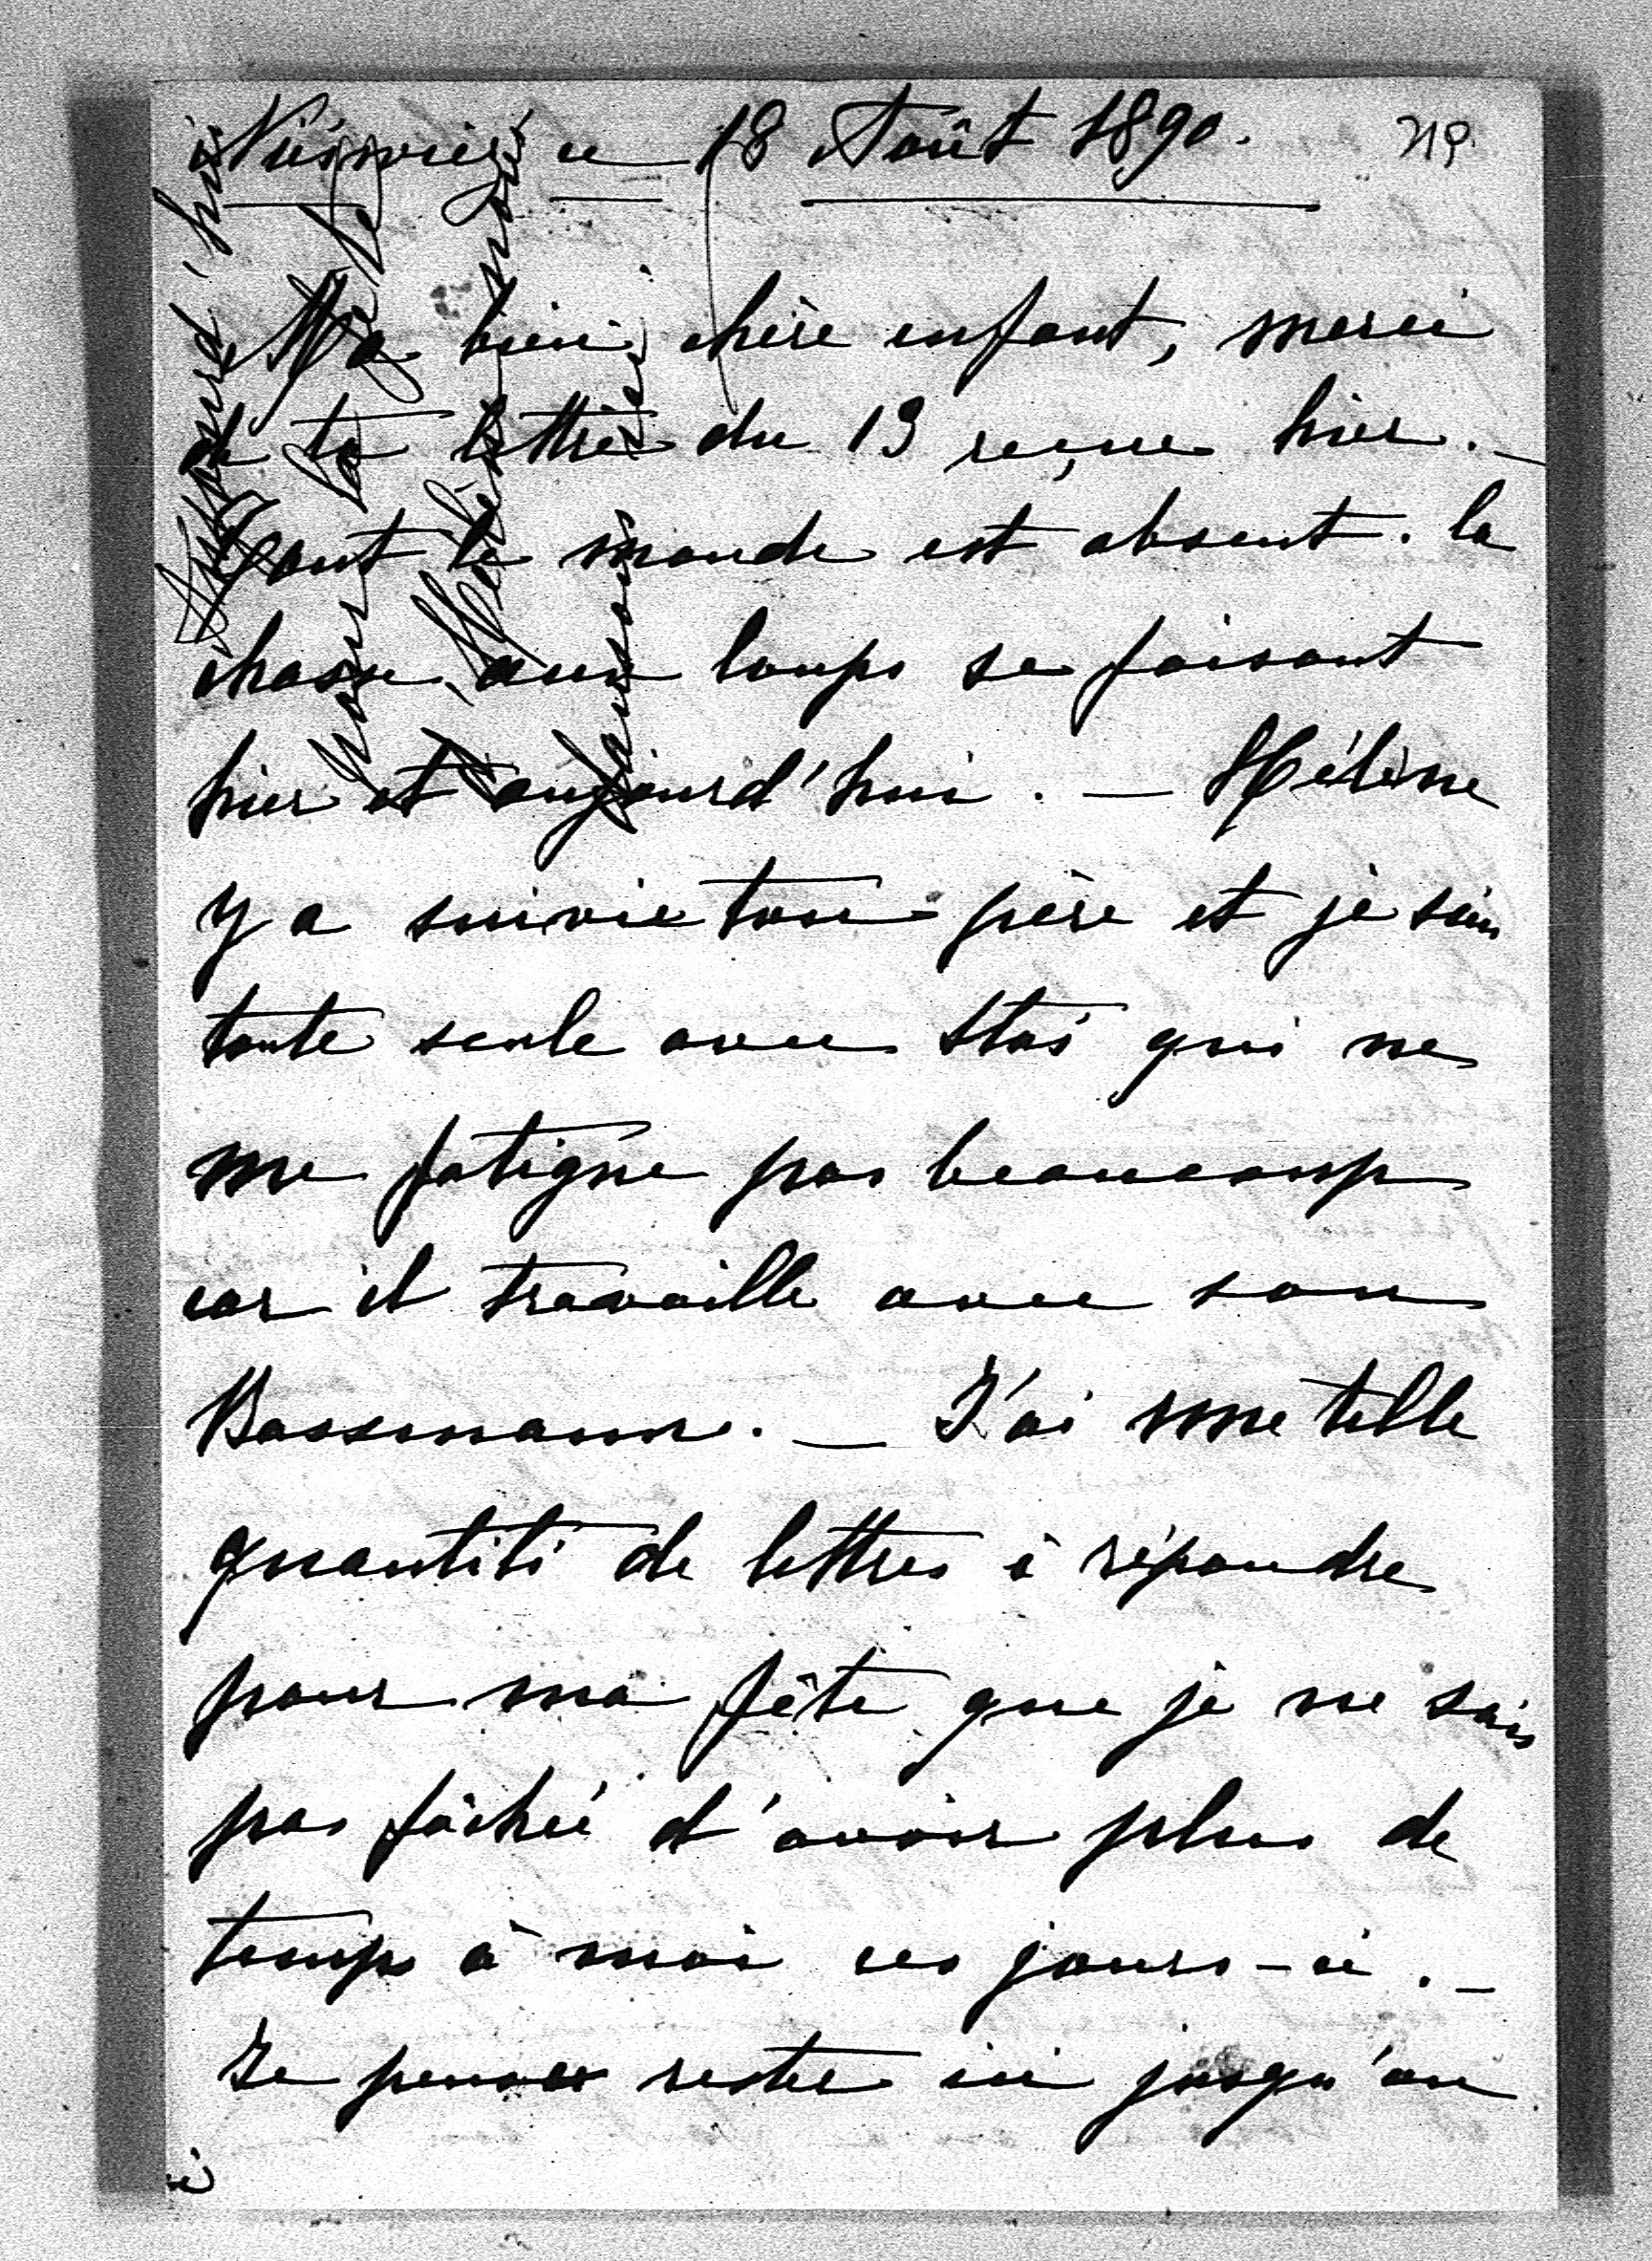 Niéswiez ce 18 Août 1890.
219.
Ma bien chère enfant, merci
de ta lettre du 13 reçue hier. —
Tout le monde est absent. la
chasse aux loups se faisant
hier et aujourd'hui. — Hélène
y a suivie ton père et je suis
toute seule avec Stas qui ne
me fatigue pas beaucoup
car il travaille avec son
Bassmann. — J'ai une telle
quantité de lettres à répondre
pour ma fête que je ne suis
pas fâchée d'avoir plus de
temps à moi ces jours-ci. —
Je pense rester ici jusqu'au
Aujourd'hui
pour la fête